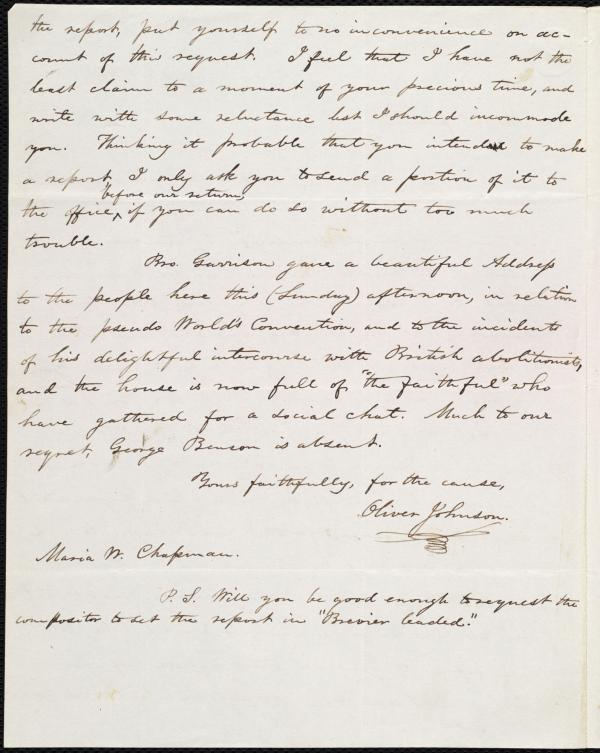 the report, put yourself to no inconvenience on ac-
count of this request. I feel that I have not the
least claim to a moment of your precious time, and
write with some reluctance lest I should incommode
you. Thinking it probable that you intend to make
a report, I only ask you to send a portion of it to
before our return,
the office, if you can do so without too much
trouble.
Bro. Garrison gave a beautiful Address
to the people here this (Sunday) afternoon, in relation
to the pseudo World's Convention, and to the incidents
of his delightful intercourse with British abolitionists,
and the house is now full of "the faithful" who
have gathered for a social chat. Much to our
regret, George Benson is absent.
Yours faithfully, for the cause,
Oliver Johnson.
Maria W. Chapman.
P. S. Will you be good enough to request the
compositor to set the report in "Brevier leaded."